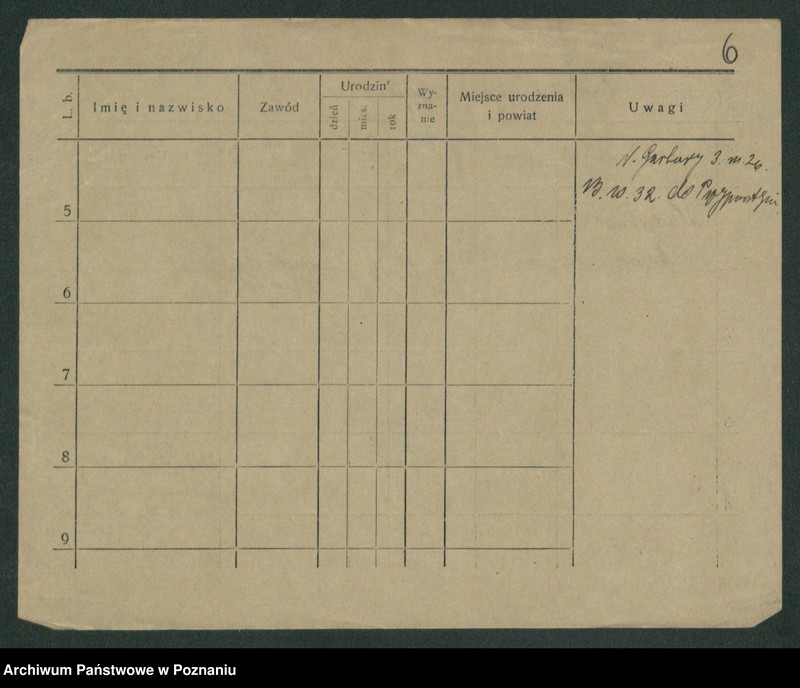 6
L. b.
Imię i nazwisko
Zawód
Urodzin'
dzień
mies.
rok
Wy-
zna-
nie
Miejsce urodzenia
i powiat
Uwagi
Garbary 3. m. 26.
32. do
5
6
7
8
9
Archiwum Państwowe w Poznaniu